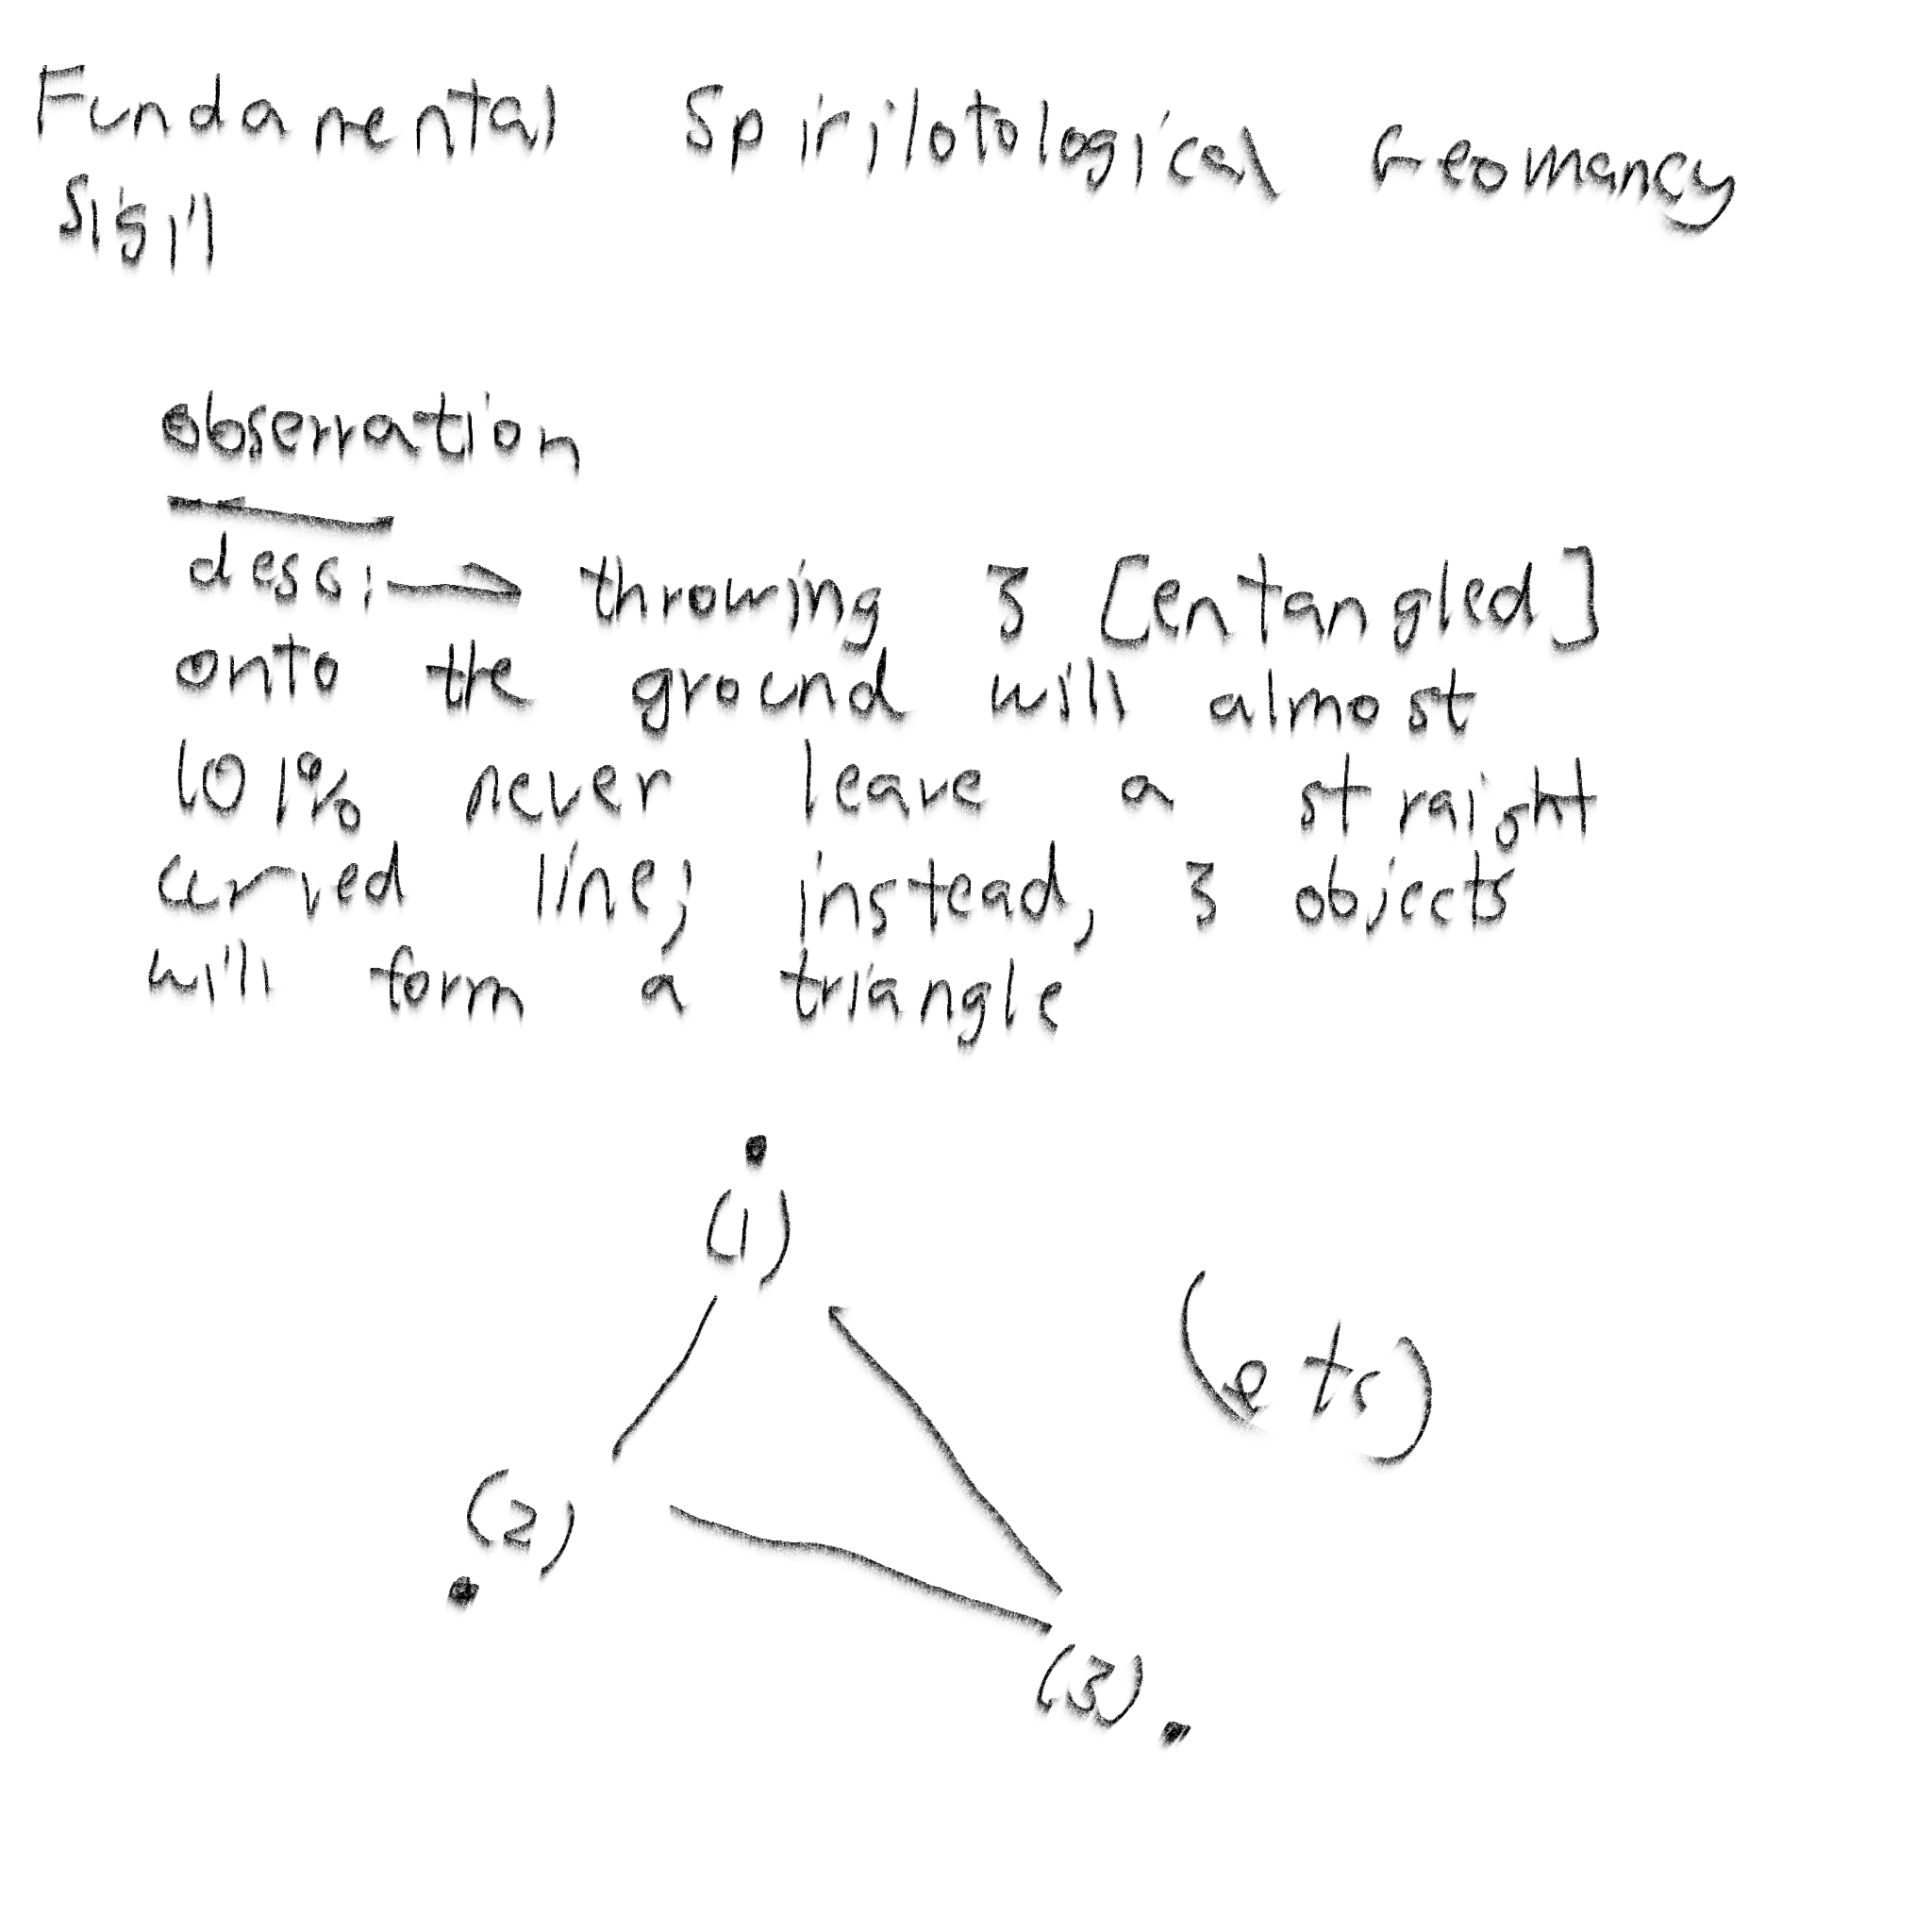 Fundamental Spirilotological Geomancy
Sigil
observation
desc: throwing 3 [entangled]
onto the ground will almost
101% never leave a straight
curved line; instead, 3 objects
will form a triangle
(1)
(etc)
(2)
(3).